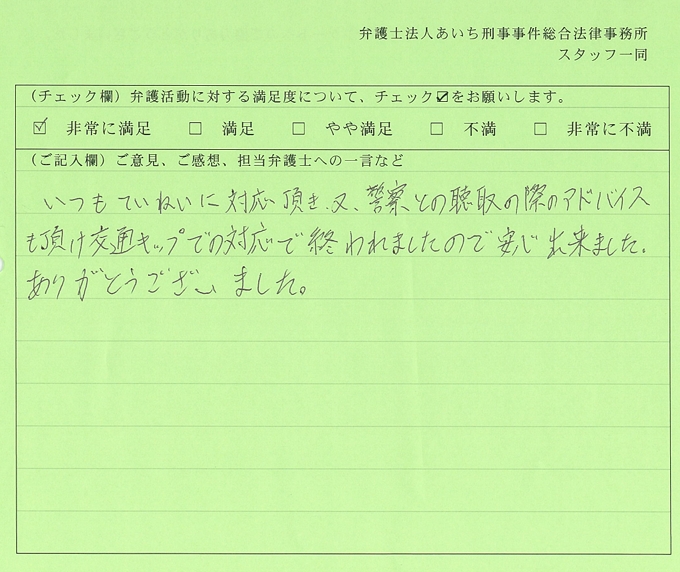 弁護士法人あいち刑事事件総合法律事務所
スタッフ一同
（チェック欄）弁護活動に対する満足度について、チェック☑をお願いします。
☑ 非常に満足 □ 満足 □ やや満足 □ 不満 □ 非常に不満
（ご記入欄）ご意見、ご感想、担当弁護士への一言など
いつもていねいに対応頂き、又、警察との聴取の際のアドバイス
も頂け交通キップでの対応で終われましたので安心出来ました。
ありがとうございました。